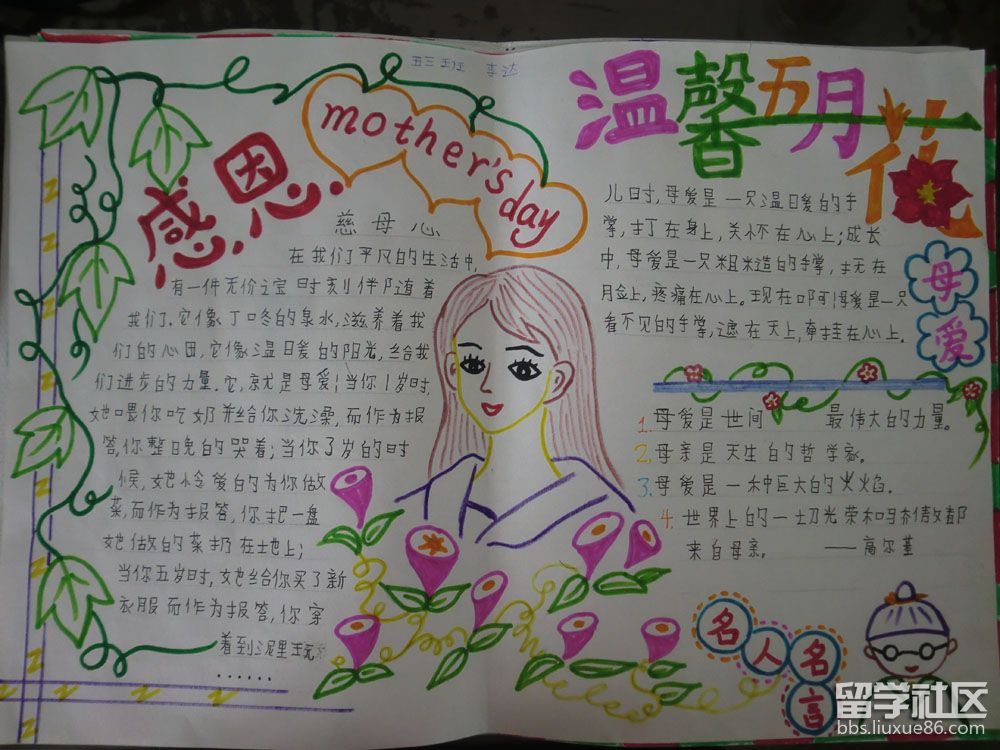 五三班 李达
mother's day
感恩
慈母心
在我们平凡的生活中,
有一件无价之宝时刻伴随着
我们.它像丁咚的泉水,滋养着我
们的心田,它像温暖的阳光,给我
们进步的力量.它,就是母爱!当你1岁时,
她喂你吃奶并给你洗澡,而作为报
答,你整晚的哭着;当你了岁的时
候,她怜爱的为你做
菜,而作为报答,你把一盘
她做的菜扔在地上;
当你五岁时,她给你买了新
衣服而作为报答,你穿
着到泥里玩
......
温馨五月花
儿时,母爱是一只温暖的手
掌,打在身上,关怀在心上;成长
中,母爱是一只粗糙的手掌,抚在
脸上,疼痛在心上。现在呵!母爱是一只
看不见的手掌,遮在天上,牵挂在心上。
母爱
1.母爱是世间 最伟大的力量。
2.母亲是天生的哲学家。
3.母爱是一种巨大的火焰。
4.世界上的一切光荣和骄傲都
来自母亲。 ——高尔基
名人名言
留学社区
bbs.liuxue86.com